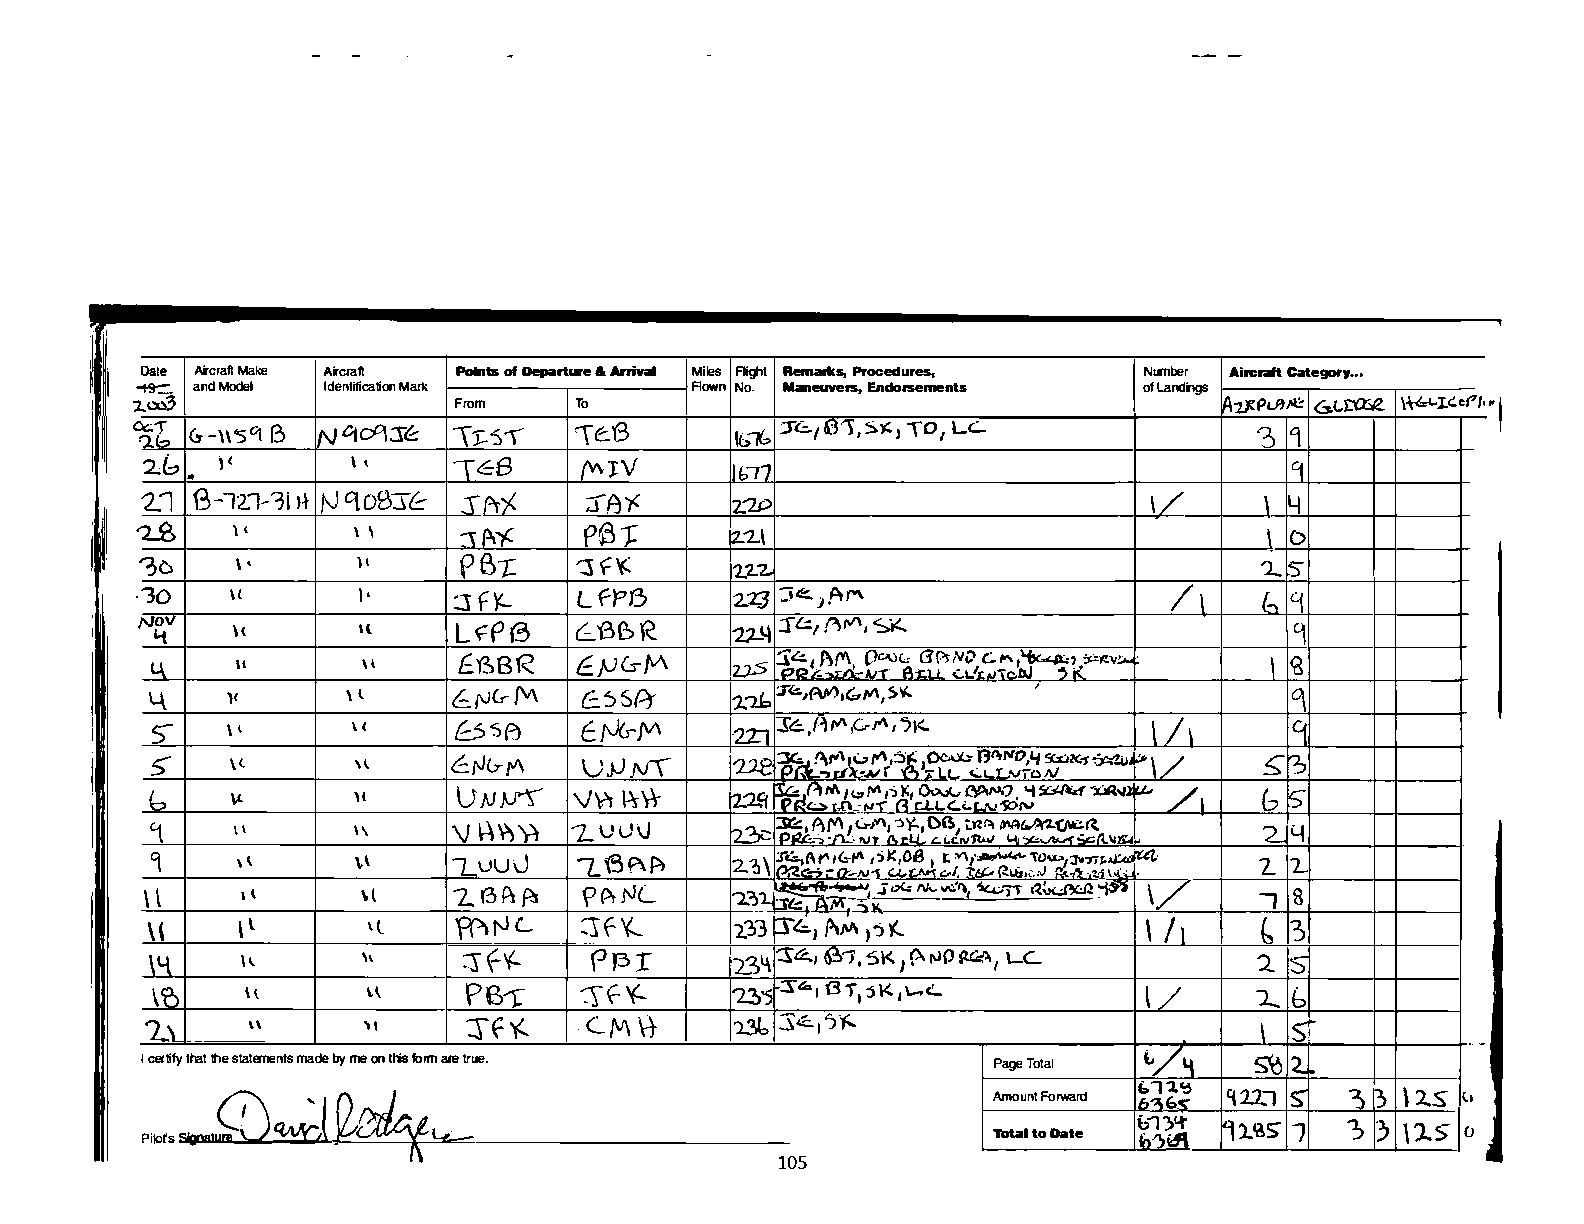 Date Aircraft Make Aircraft Points of Departure & Arrival Miles Flight Remarks, Procedures, Number Aircraft Category...
19 and Model Identification Mark Flown No. Maneuvers, Endorsements of Landings
2003 From To AIRPLANE GLIDER HELICOPTER
OCT
26 G-1159B N909JE TIST TEB 1676 JE, BT, SK, TO, LC 3 9
26 " " TEB MIV 1677 9
27 B-727-31H N908JE JAX JAX 220 1/ 1 4
28 " " JAX PBI 221 1 0
30 " " PBI JFK 222 2 5
30 " " JFK LFPB 223 JE, AM /1 6 9
NOV
4 " " LFPB EBBR 224 JE, AM, SK 9
4 " " EBBR ENGM 225 JE, AM, DOUG BAND GM, 4 SECRET SERVICE 1 8
PRESIDENT BILL CLINTON, SK
4 " " ENGM ESSA 226 JE, AM, GM, SK 9
5 " " ESSA ENGM 227 JE, AM, GM, SK 1/1 9
5 " " ENGM UNNT 228 JE, AM, GM, SK, DOUG BAND, 4 SECRET SERVICE 1/ 5 3
PRESIDENT BILL CLINTON
6 " " UNNT VHHH 229 JE, AM, GM, SK, DOUG BAND, 4 SECRET SERVICE /1 6 5
PRESIDENT BILL CLINTON
9 " " VHHH ZUUU 230 JE, AM, GM, SK, DB, IRA MAGAZINER 2 4
PRESIDENT BILL CLINTON 4 SECRET SERVICE
9 " " ZUUU ZBAA 231 JE, AM, GM, SK, DB, IM, 2 2
PRESIDENT CLINTON,
11 " " ZBAA PANC 232 JOE 1/ 7 8
JE, AM, SK
11 " " PANC JFK 233 JE, AM, SK 1/1 6 3
14 " " JFK PBI 234 JE, BT, SK, ANDREA, LC 2 5
18 " " PBI JFK 235 JE, BT, SK, LC 1/ 2 6
21 " " JFK CMH 236 JE, SK 1 5
I certify that the statements made by me on this form are true.
Page Total 6/4 58 2
Amount Forward 6728 6365 9227 5 3 3 125 0
Pilot's Signature David Rodgers
Total to Date 6734 6369 9285 7 3 3 125 0
105